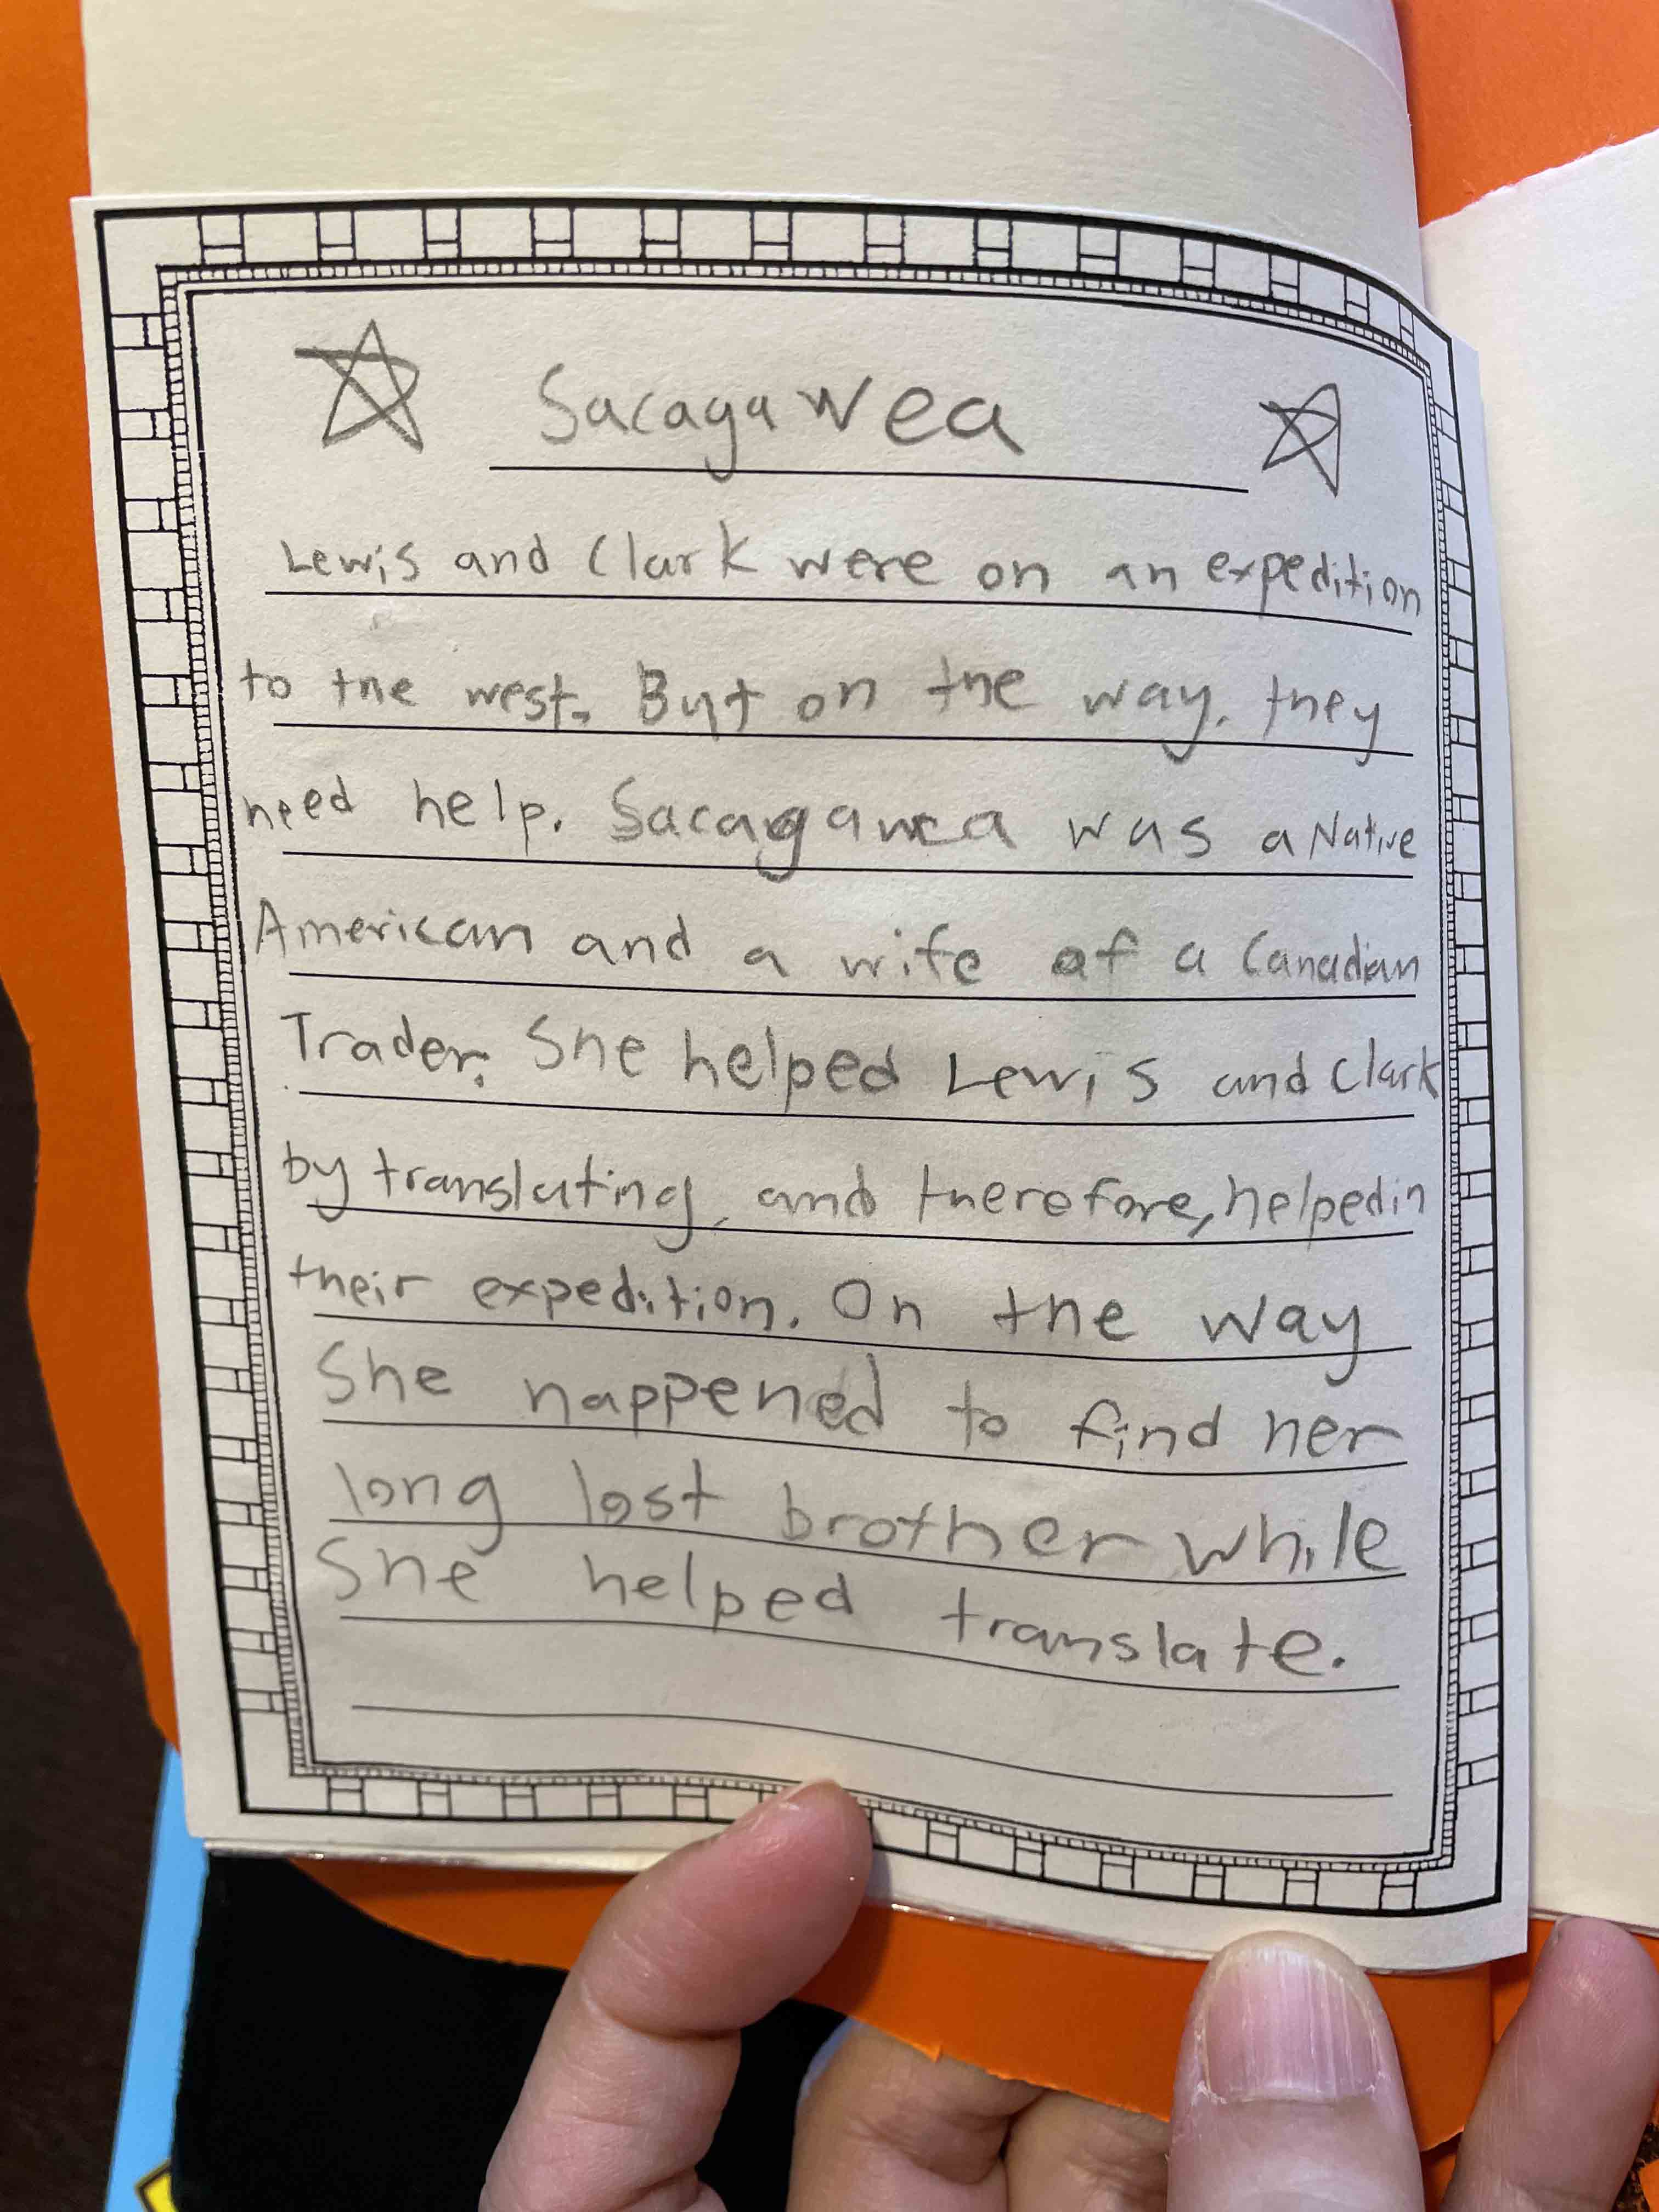 Sacagawea
Lewis and Clark were on an expedition
to the west. But on the way, they
need help. Sacagawea was a Native
American and a wife of a Canadian
Trader. She helped Lewis and Clark
by translating, and therefore, helped in
their expedition. On the way
She happened to find her
long lost brother while
She helped translate.